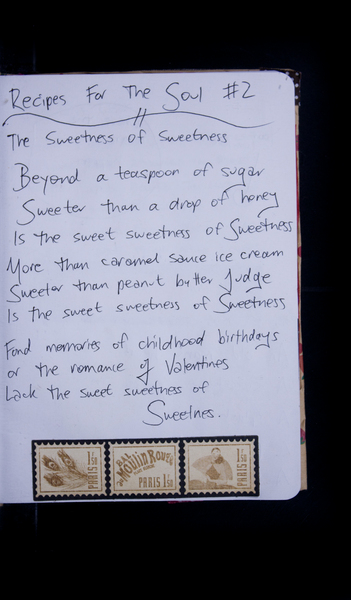 Recipes For The Soul #2
The Sweetness of Sweetness
Beyond a teaspoon of sugar
Sweeter than a drop of honey
Is the sweet sweetness of Sweetness
More than caramel sauce ice cream
Sweeter than peanut butter Judge
Is the sweet sweetness of Sweetness
Fond memories of childhood birthdays
or the romance of Valentines
Lack the sweet sweetness of
Sweetnes.
PARIS 1F50
BAL
DU MOULIN ROUGE
PARIS 1F50
PARIS 1F50